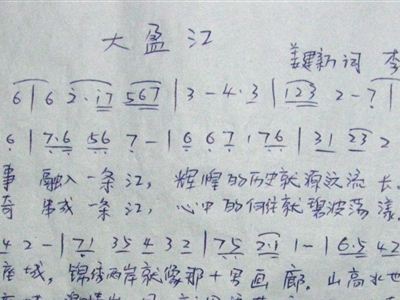 大盈江
姜建新词 李
6 | 6 2·17 567 | 3 - 4·3 | 123 2 - 7 |
6 | 7·6 56 7 - | 6 6 7 1 76 | 31 23 2
事 融入一条江, 辉煌的历史就源远流长。
奇 串成一条江, 心中的向往就碧波荡漾。
4 2 - | 71 35 4 3 2 | 75 2·1 1 - | 6·5 42
座城, 锦绣两岸就像那十里画廊. 山高水也